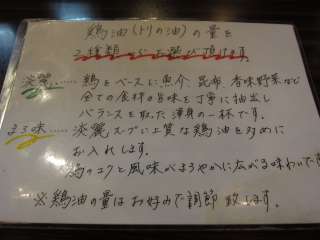 鶏油(トリの油)の量を
2種類からお選び頂けます。
淡麗…… 鶏をベースに魚介、昆布、香味野菜など
全ての食材の旨味を丁寧に抽出し
バランスを取った渾身の一杯です。
まろ味…… 淡麗スープに上質な鶏油を多めに
お入れします。
鶏のコクと風味がまろやかに広がる味わいで
※鶏油の量はお好みで調節致します。